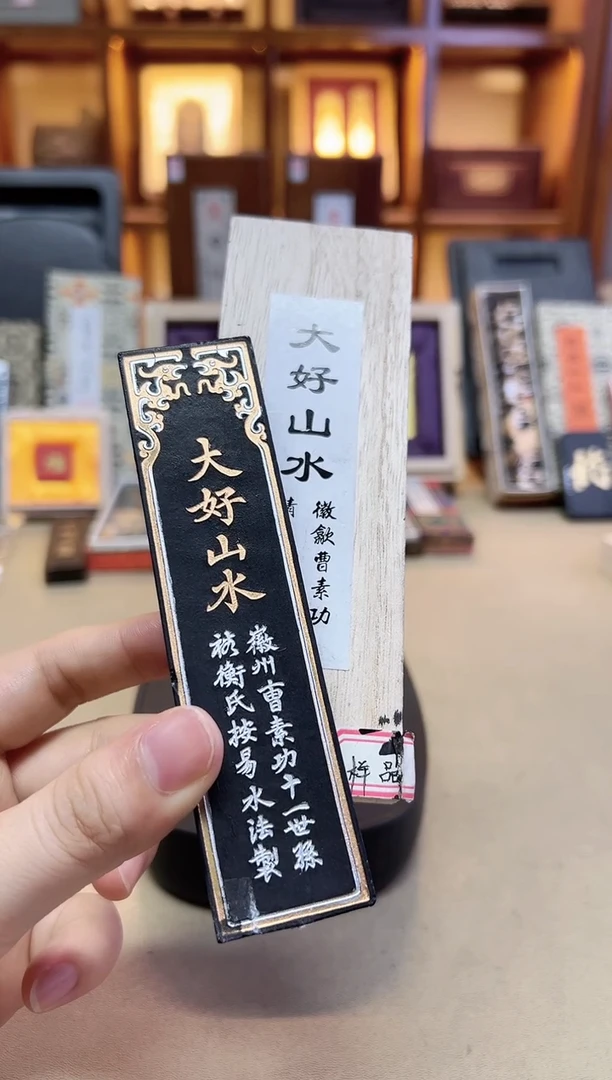 大好山水
徽州曹素功十一世孫
衡氏按易水法製
大好山水
徽歙曹素功
樣品